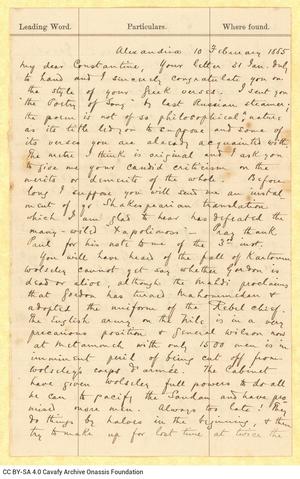 Leading Word. Particulars. Where found.
Alexandria 10 February 1885
My dear Constantine, Your letter 21 Jan. duly
to hand and I sincerely congratulate you on
the style of your Greek verses. I sent you
the "Poetry of Song" by last Russian steamer;
the poem is not of so philosophical a nature
as its title led you to suppose and some of
its verses you are already acquainted with.
The metre I think is original and I ask you
to give me your candid criticism on the
merits or demerits of the whole. Before
long I suppose you will send me an instal-
ment of yr Shakespearian translation
which I am glad to hear has defeated the
many-wild Pray thank
Paul for his note to me of the 3rd inst.
You will have heard of the fall of Kartoum
Wolseley cannot yet say whether Gordon is
dead or alive, although the Mahdi proclaims
that Gordon has turned Mahommedan &
adopted the uniform of the Rebel chief.
The English army on the Nile is in a very
precarious position & General Wilson now
at Metammeh with only 1500 men is in
imminent peril of being cut off from
Wolseley's corps d'armée. The Cabinet
have given Wolseley full powers to do all
he can to pacify the Soudan and have pro-
mised more men. Always too late! They
do things by halves in the beginning, & then
try to make up for lost time at twice the
CC BY-SA 4.0 Cavafy Archive Onassis Foundation